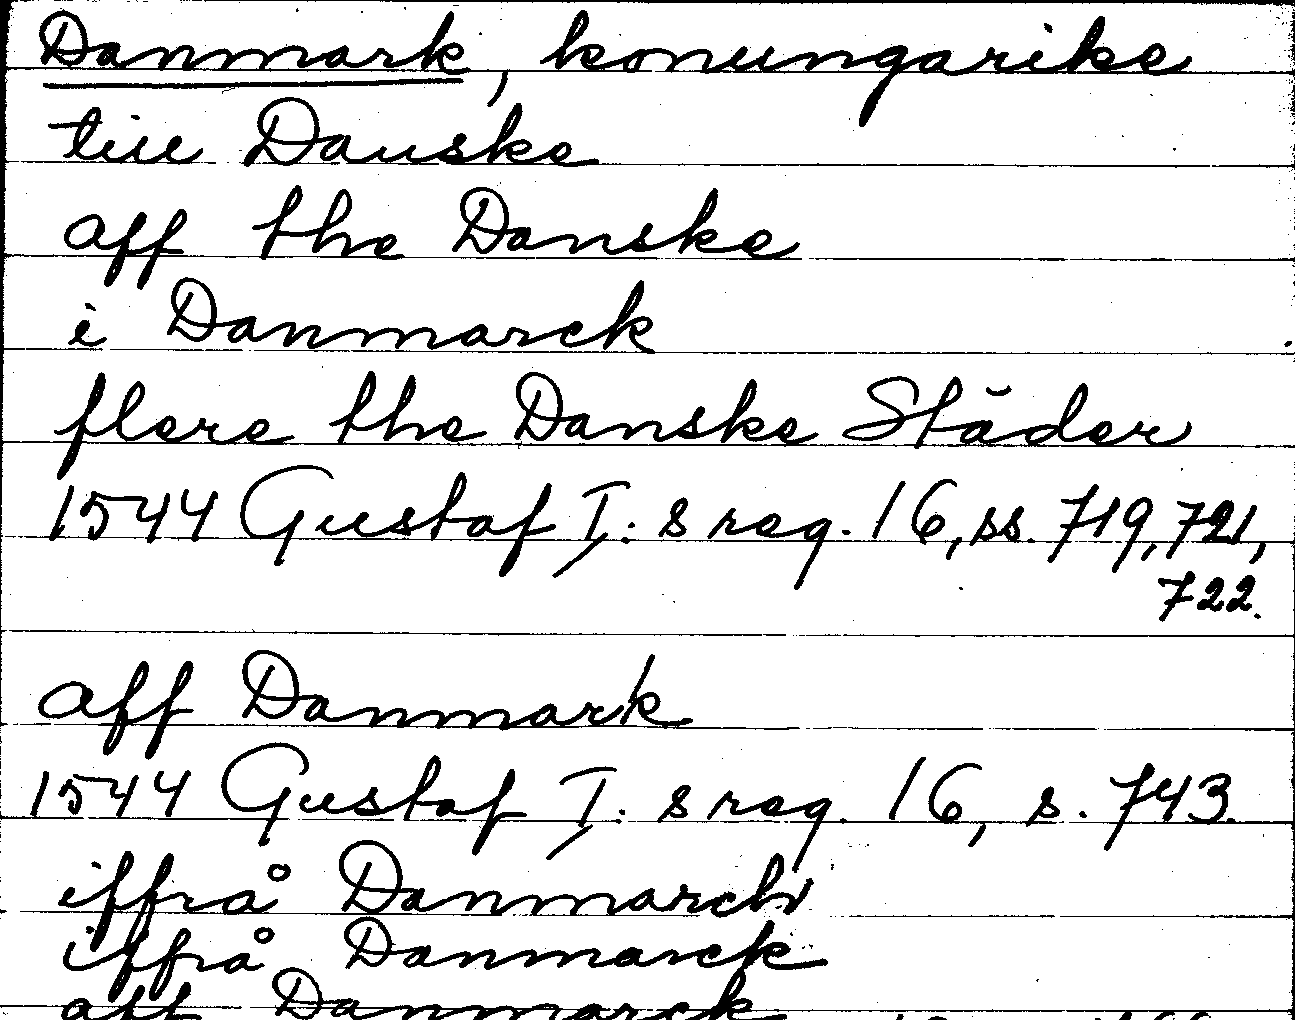 Danmark, konungarike
till Danske
aff the Danske
i Danmarck
flere the Danske Städer
1544 Gustaf I:s reg. 16, ss. 719, 721,
722.
aff Danmark
1544 Gustaf I:s reg. 16, s. 743.
iffrå Danmarch
iffrå Danmarck
aff Danmarck